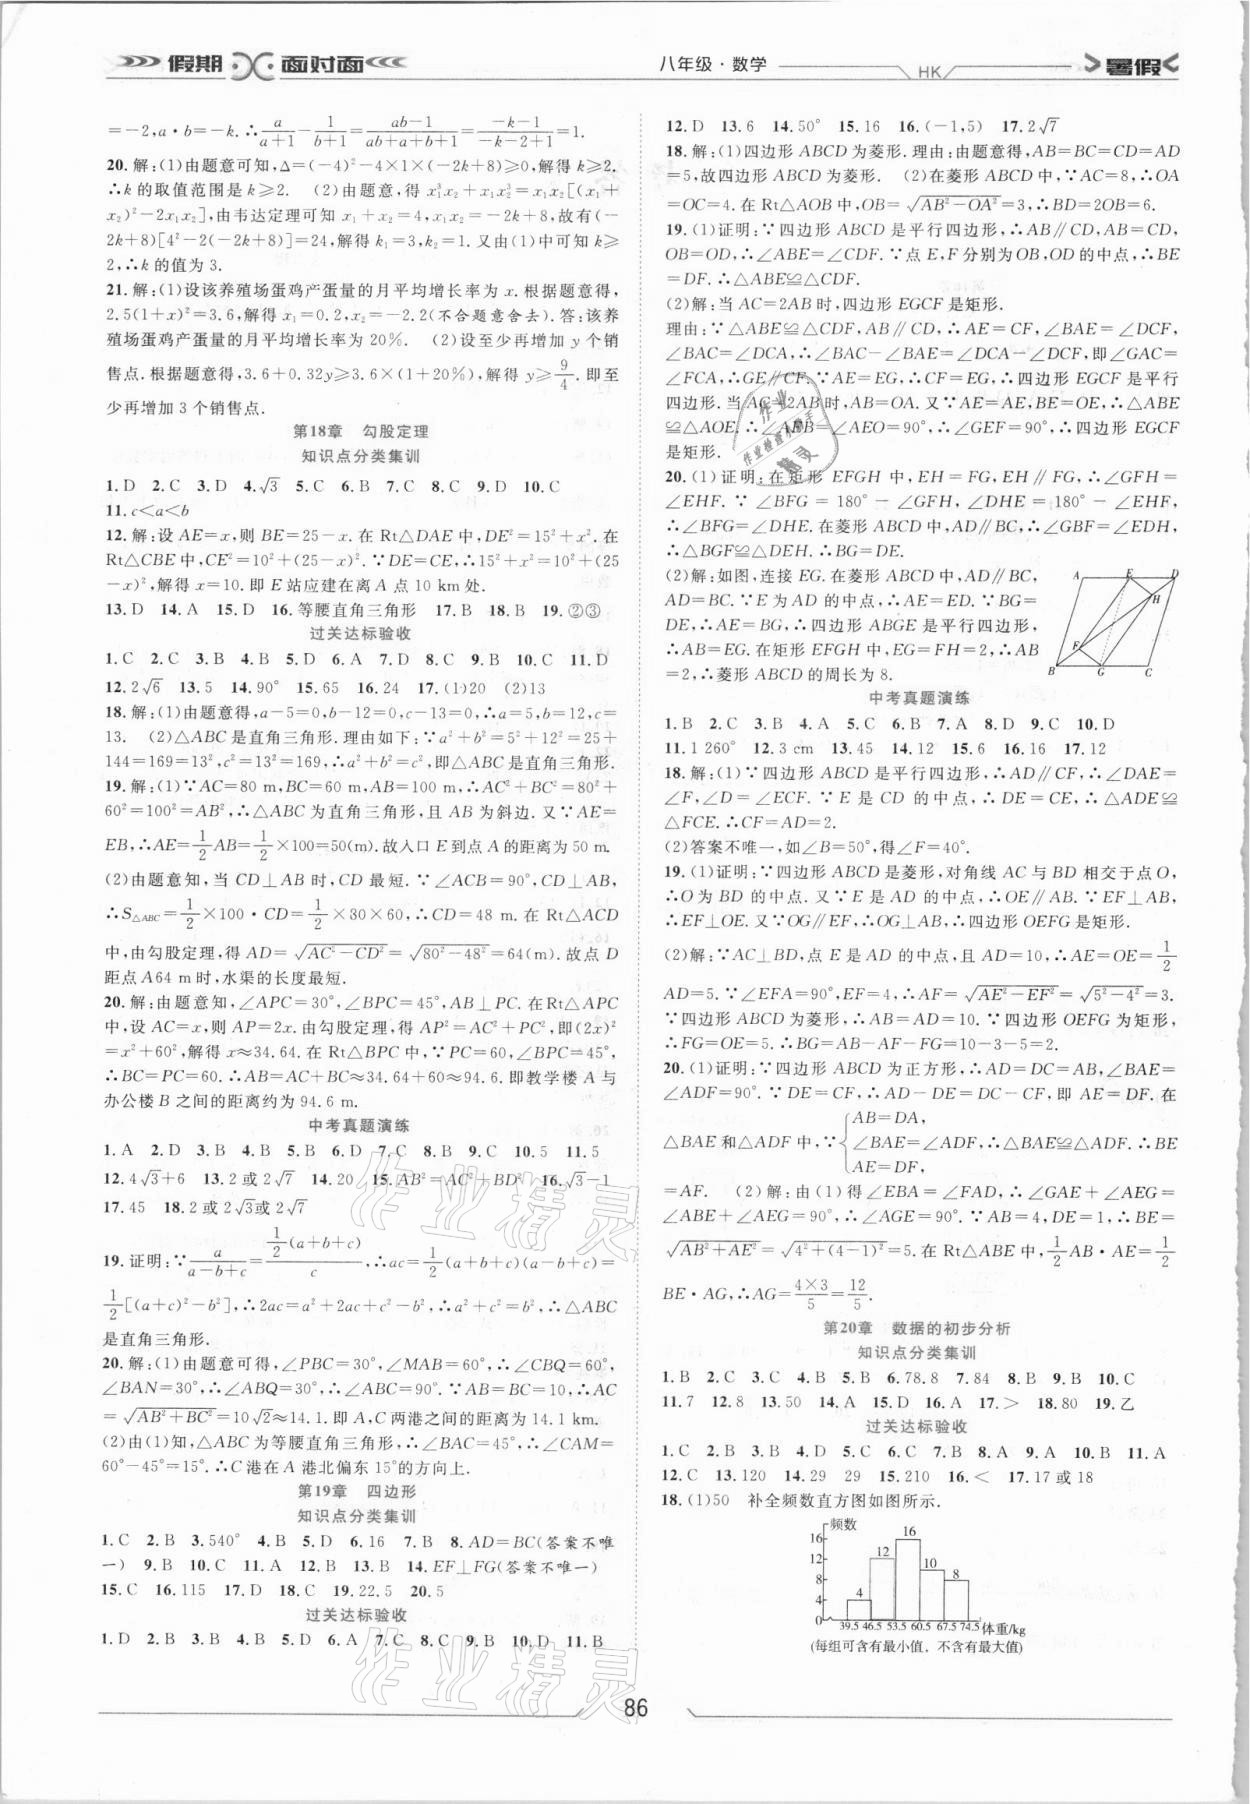 假期 面对面
八年级·数学 HK 暑假
=-2,a·b=-k.∴a/(a+1)-1/(b+1)=(ab-1)/(ab+a+b+1)=(-k-1)/(-k-2+1)=1.
20.解:(1)由题意可知,Δ=(-4)²-4×1×(-2k+8)≥0,解得 k≥2.
∴k 的取值范围是 k≥2. (2)由题意,得 x₁³x₂+x₁x₂³=x₁x₂[(x₁+
x₂)²-2x₁x₂],由韦达定理可知 x₁+x₂=4,x₁x₂=-2k+8,故有(-
2k+8)[4²-2(-2k+8)]=24,解得 k₁=3,k₂=1.又由(1)中可知 k≥
2,∴k 的值为 3.
21.解:(1)设该养殖场蛋鸡产蛋量的月平均增长率为 x.根据题意得,
2.5(1+x)²=3.6,解得 x₁=0.2,x₂=-2.2(不合题意舍去).答:该养
殖场蛋鸡产蛋量的月平均增长率为 20%. (2)设至少再增加 y 个销
售点.根据题意得,3.6+0.32y≥3.6×(1+20%),解得 y≥9/4.即至
少再增加 3 个销售点.
第18章 勾股定理
知识点分类集训
1.D 2.C 3.D 4.√3 5.C 6.B 7.C 8.C 9.D 10.C
11.c<a<b
12.解:设 AE=x,则 BE=25-x.在 Rt△DAE 中,DE²=15²+x².在
Rt△CBE 中,CE²=10²+(25-x)².∵DE=CE,∴15²+x²=10²+(25
-x)²,解得 x=10.即 E 站应建在离 A 点 10 km 处.
13.D 14.A 15.D 16.等腰直角三角形 17.B 18.B 19.②③
过关达标验收
1.C 2.C 3.B 4.B 5.D 6.A 7.D 8.C 9.B 10.C 11.D
12.2√6 13.5 14.90° 15.65 16.24 17.(1)20 (2)13
18.解:(1)由题意得,a-5=0,b-12=0,c-13=0,∴a=5,b=12,c=
13. (2)△ABC 是直角三角形.理由如下:∵a²+b²=5²+12²=25+
144=169=13²,c²=13²=169,∴a²+b²=c²,即△ABC 是直角三角形.
19.解:(1)∵AC=80 m,BC=60 m,AB=100 m,∴AC²+BC²=80²+
60²=100²=AB²,∴△ABC 为直角三角形,且 AB 为斜边.又∵AE=
EB,∴AE=1/2AB=1/2×100=50(m).故入口 E 到点 A 的距离为 50 m.
(2)由题意知,当 CD⊥AB 时,CD 最短.∵∠ACB=90°,CD⊥AB,
∴S△ABC=1/2×100·CD=1/2×30×60,∴CD=48 m.在 Rt△ACD
中,由勾股定理,得 AD=√(AC²-CD²)=√(80²-48²)=64(m).故点 D
距点 A64 m 时,水渠的长度最短.
20.解:由题意知,∠APC=30°,∠BPC=45°,AB⊥PC.在 Rt△APC
中,设 AC=x,则 AP=2x.由勾股定理,得 AP²=AC²+PC²,即(2x)²
=x²+60²,解得 x≈34.64.在 Rt△BPC 中,∵PC=60,∠BPC=45°,
∴BC=PC=60.∴AB=AC+BC≈34.64+60≈94.6.即教学楼 A 与
办公楼 B 之间的距离约为 94.6 m.
中考真题演练
1.A 2.D 3.B 4.B 5.B 6.D 7.C 8.B 9.C 10.5 11.5
12.4√3+6 13.2 或 2√7 14.20 15.AB²=AC²+BD² 16.√3-1
17.45 18.2 或 2√3或 2√7
19.证明:∵a/(a-b+c)=1/2(a+b+c)/c,∴ac=1/2(a+b+c)(a-b+c)=
1/2[(a+c)²-b²],∴2ac=a²+2ac+c²-b²,∴a²+c²=b²,∴△ABC
是直角三角形.
20.解:(1)由题意可得,∠PBC=30°,∠MAB=60°,∴∠CBQ=60°,
∠BAN=30°,∴∠ABQ=30°,∴∠ABC=90°.∵AB=BC=10,∴AC
=√(AB²+BC²)=10√2≈14.1.即 A,C 两港之间的距离为 14.1 km.
(2)由(1)知,△ABC 为等腰直角三角形,∴∠BAC=45°,∠CAM=
60°-45°=15°.∴C 港在 A 港北偏东 15°的方向上.
第19章 四边形
知识点分类集训
1.C 2.B 3.540° 4.B 5.D 6.16 7.B 8.AD=BC(答案不唯
一) 9.B 10.C 11.A 12.B 13.B 14.EF⊥FG(答案不唯一)
15.C 16.115 17.D 18.C 19.22.5 20.5
过关达标验收
1.D 2.B 3.B 4.B 5.D 6.A 7.C 8.C 9.B 10.D 11.B
12.D 13.6 14.50° 15.16 16.(-1,5) 17.2√7
18.解:(1)四边形 ABCD 为菱形.理由:由题意得,AB=BC=CD=AD
=5,故四边形 ABCD 为菱形. (2)在菱形 ABCD 中,∵AC=8,∴OA
=OC=4.在 Rt△AOB 中,OB=√(AB²-OA²)=3,∴BD=2OB=6.
19.(1)证明:∵四边形 ABCD 是平行四边形,∴AB∥CD,AB=CD,
OB=OD,∴∠ABE=∠CDF.∵点 E,F 分别为 OB,OD 的中点,∴BE
=DF.∴△ABE≌△CDF.
(2)解:当 AC=2AB 时,四边形 EGCF 是矩形.
理由:∵△ABE≌△CDF,AB∥CD,∴AE=CF,∠BAE=∠DCF,
∠BAC=∠DCA,∴∠BAC-∠BAE=∠DCA-∠DCF,即∠GAC=
∠FCA,∴GE∥CF.∵AE=EG,∴CF=EG,∴四边形 EGCF 是平行
四边形.当 AC=2AB时,AB=OA.又∵AE=AE,BE=OE,∴△ABE
≌△AOE.∴∠AEB=∠AEO=90°,∴∠GEF=90°.∴四边形 EGCF
是矩形.
20.(1)证明:在矩形 EFGH 中,EH=FG,EH∥FG,∴∠GFH=
∠EHF.∵∠BFG=180°-∠GFH,∠DHE=180°-∠EHF,
∴∠BFG=∠DHE.在菱形 ABCD 中,AD∥BC,∴∠GBF=∠EDH,
∴△BGF≌△DEH.∴BG=DE.
(2)解:如图,连接 EG.在菱形 ABCD 中,AD∥BC,
AD=BC.∵E 为 AD 的中点,∴AE=ED.∵BG=
DE,∴AE=BG,∴四边形 ABGE 是平行四边形,
∴AB=EG.在矩形 EFGH 中,EG=FH=2,∴AB
=2,∴菱形 ABCD 的周长为 8.
A E D
H
F
B G C
中考真题演练
1.B 2.C 3.B 4.A 5.C 6.B 7.A 8.D 9.C 10.D
11.1 260° 12.3 cm 13.45 14.12 15.6 16.16 17.12
18.解:(1)∵四边形 ABCD 是平行四边形,∴AD∥CF,∴∠DAE=
∠F,∠D=∠ECF.∵E 是 CD 的中点,∴DE=CE,∴△ADE≌
△FCE.∴CF=AD=2.
(2)答案不唯一,如∠B=50°,得∠F=40°.
19.(1)证明:∵四边形 ABCD 是菱形,对角线 AC 与 BD 相交于点 O,
∴O 为 BD 的中点.又∵E 是 AD 的中点,∴OE∥AB.∵EF⊥AB,
∴EF⊥OE.又∵OG∥EF,∴OG⊥AB,∴四边形 OEFG 是矩形.
(2)解:∵AC⊥BD,点 E 是 AD 的中点,且 AD=10,∴AE=OE=1/2
AD=5.∵∠EFA=90°,EF=4,∴AF=√(AE²-EF²)=√(5²-4²)=3.
∵四边形 ABCD 为菱形,∴AB=AD=10.∵四边形 OEFG 为矩形,
∴FG=OE=5.∴BG=AB-AF-FG=10-3-5=2.
20.(1)证明:∵四边形 ABCD 为正方形,∴AD=DC=AB,∠BAE=
∠ADF=90°.∵DE=CF,∴AD-DE=DC-CF,即 AE=DF.在
△BAE 和△ADF 中,∵{AB=DA,
∠BAE=∠ADF,∴△BAE≌△ADF.∴BE
AE=DF,
=AF. (2)解:由(1)得∠EBA=∠FAD,∴∠GAE+∠AEG=
∠ABE+∠AEG=90°,∴∠AGE=90°.∵AB=4,DE=1,∴BE=
√(AB²+AE²)=√(4²+(4-1)²)=5.在 Rt△ABE 中,1/2AB·AE=1/2
BE·AG,∴AG=4×3/5=12/5.
第20章 数据的初步分析
知识点分类集训
1.B 2.C 3.C 4.B 5.B 6.78.8 7.84 8.B 9.B 10.C
11.7 12.8 13.50 14.A 15.D 16.A 17.> 18.80 19.乙
过关达标验收
1.C 2.B 3.B 4.D 5.C 6.C 7.B 8.A 9.A 10.B 11.A
12.C 13.120 14.29 29 15.210 16.< 17.17 或 18
18.(1)50 补全频数直方图如图所示.
频数
16 12 8 4 0
4 12 16 10 8
39.5 46.5 53.5 60.5 67.5 74.5 体重/kg
(每组可含有最小值,不含有最大值)
86
作业精灵
作业检查小助手